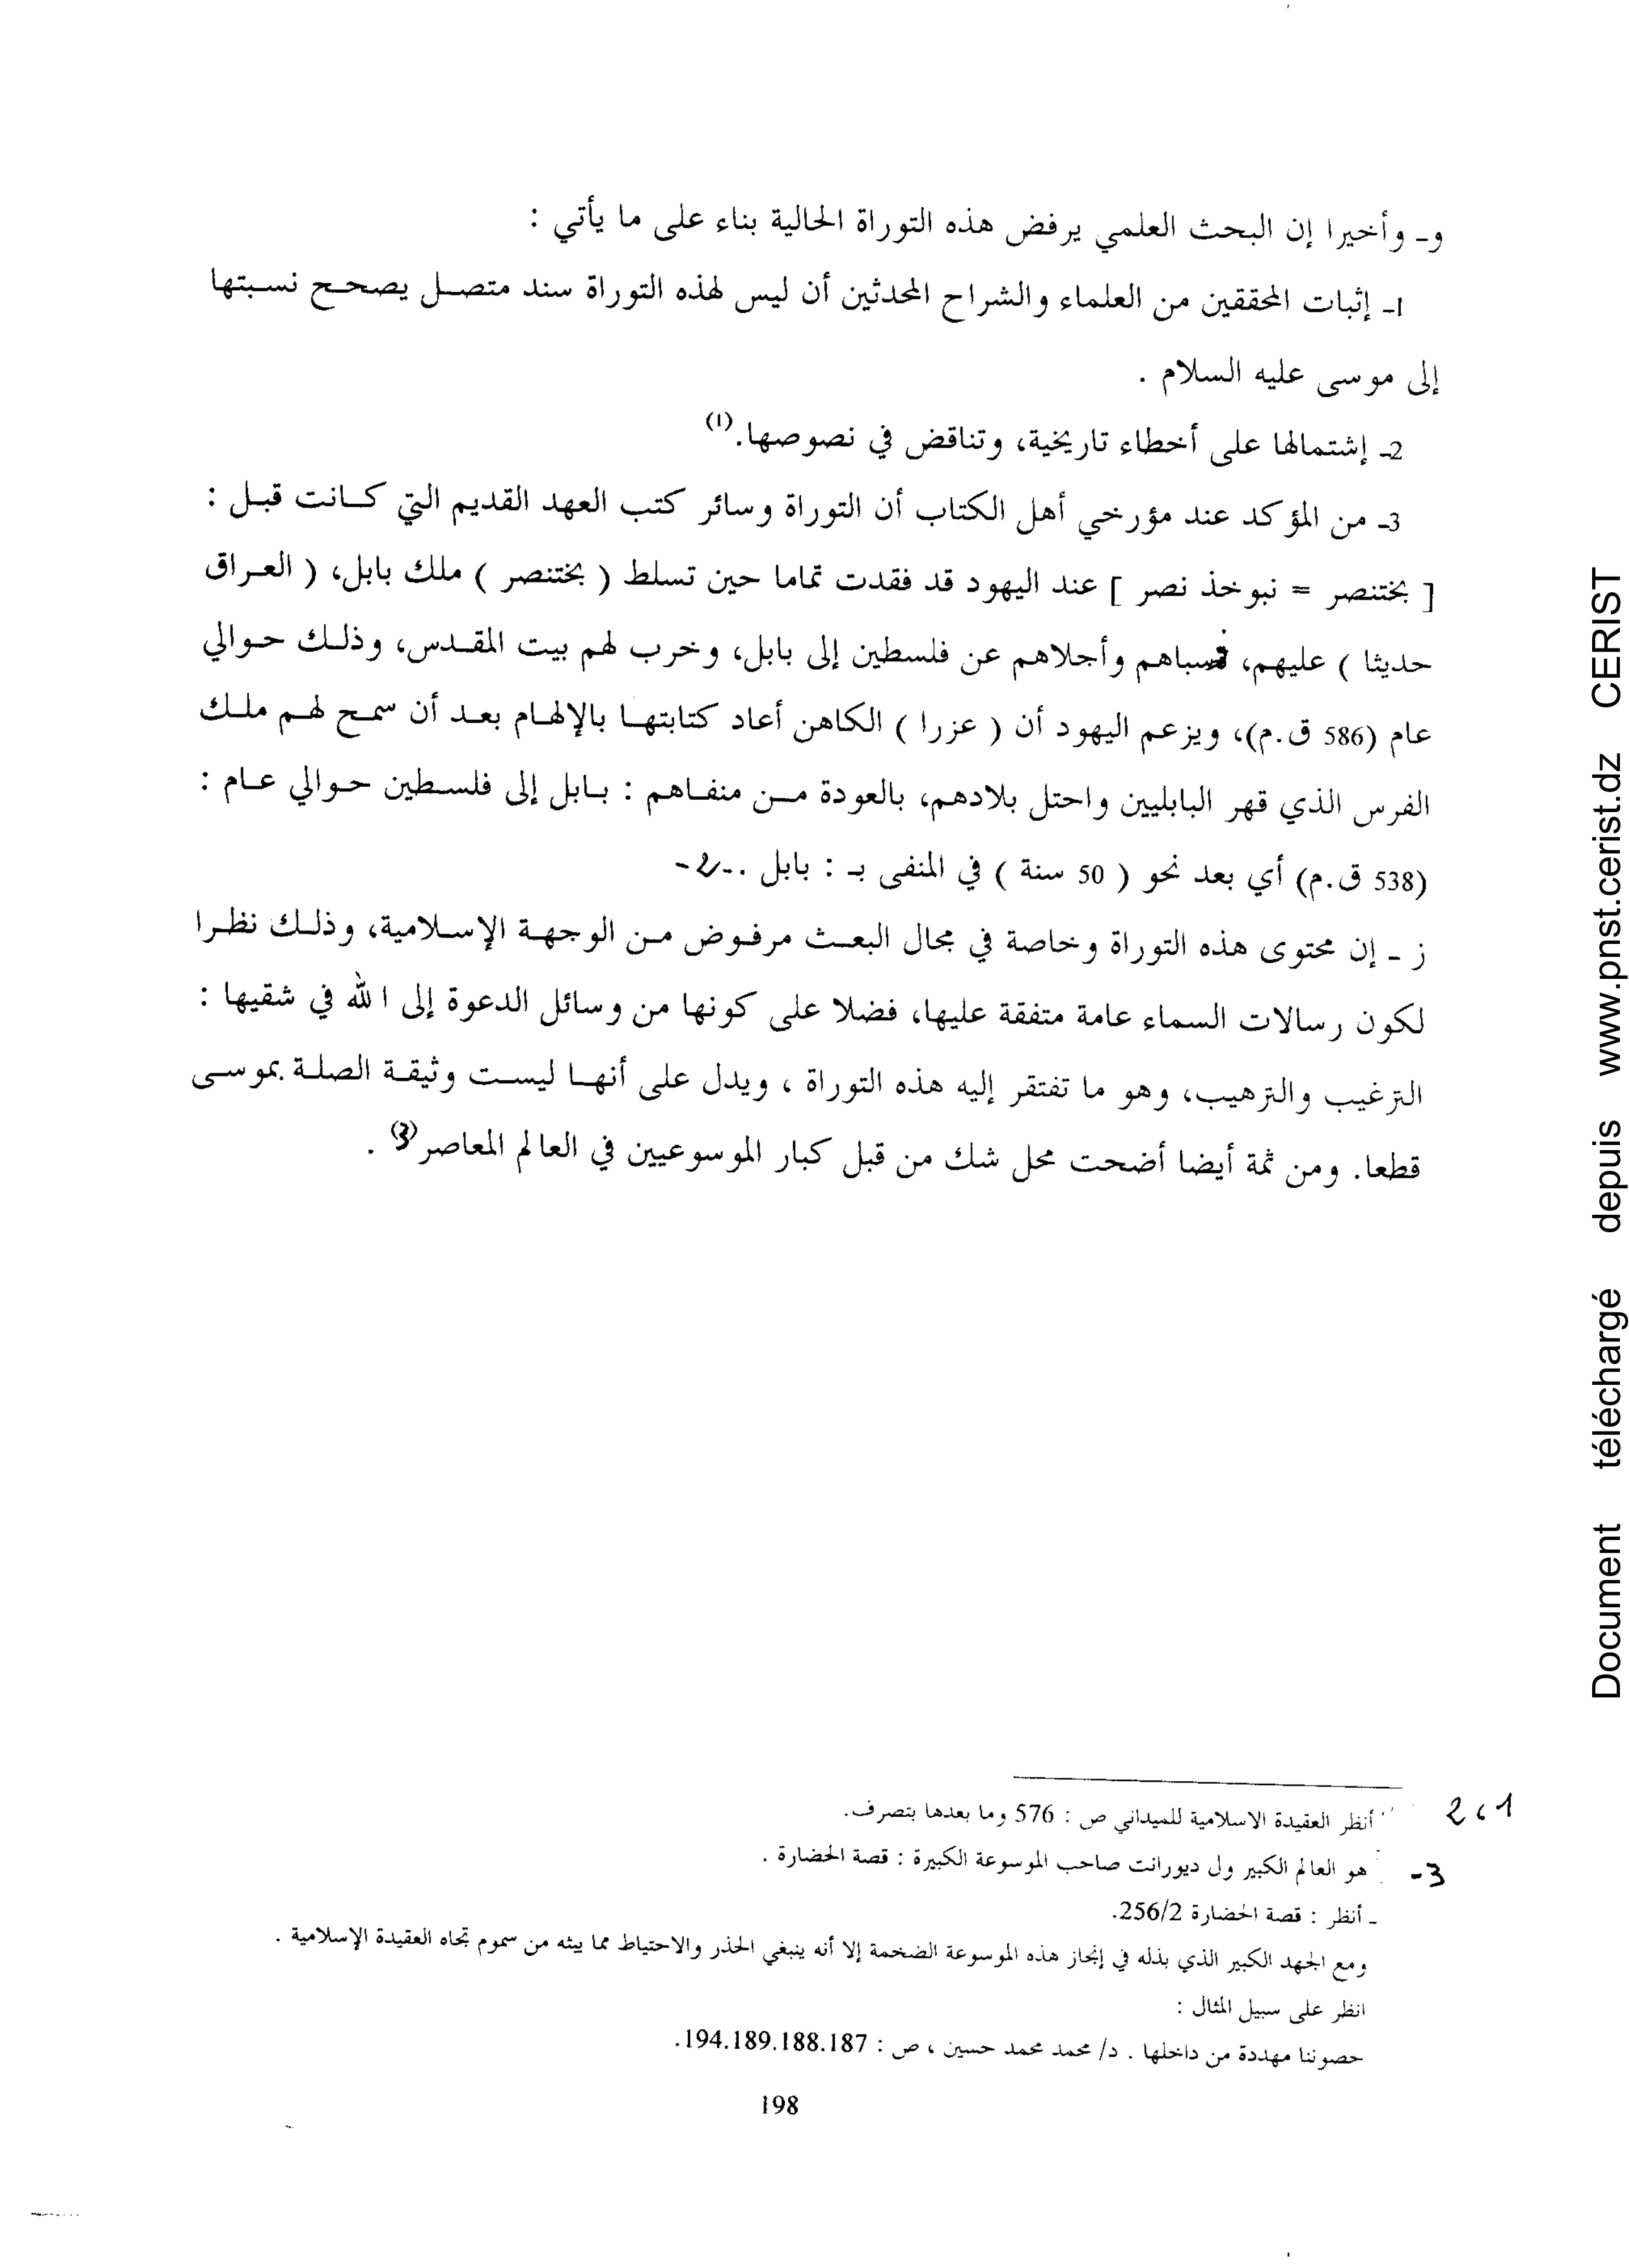 و- وأخيرا إن البحث العلمي يرفض هذه التوراة الحالية بناء على ما يأتي :
1- إثبات المحققين من العلماء والشراح المحدثين أن ليس لهذه التوراة سند متصل يصحح نسبتها
إلى موسى عليه السلام .
2- إشتمالها على أخطاء تاريخية، وتناقض في نصوصها.(1)
3- من المؤكد عند مؤرخي أهل الكتاب أن التوراة وسائر كتب العهد القديم التي كانت قبل :
[ بختنصر = نبوخذ نصر ] عند اليهود قد فقدت تماما حين تسلط ( بختنصر ) ملك بابل، ( العراق
حديثا ) عليهم، فسباهم وأجلاهم عن فلسطين إلى بابل، وخرب لهم بيت المقدس، وذلك حوالي
عام (586 ق.م)، ويزعم اليهود أن ( عزرا ) الكاهن أعاد كتابتها بالإلهام بعد أن سمح لهم ملك
الفرس الذي قهر البابليين واحتل بلادهم، بالعودة من منفاهم : بابل إلى فلسطين حوالي عام :
(538 ق.م) أي بعد نحو ( 50 سنة ) في المنفى بـ : بابل ..-2-
ز - إن محتوى هذه التوراة وخاصة في مجال البعث مرفوض من الوجهة الإسلامية، وذلك نظرا
لكون رسالات السماء عامة متفقة عليها، فضلا على كونها من وسائل الدعوة إلى الله في شقيها :
الترغيب والترهيب، وهو ما تفتقر إليه هذه التوراة ، ويدل على أنها ليست وثيقة الصلة بموسى
قطعا. ومن ثمة أيضا أضحت محل شك من قبل كبار الموسوعيين في العالم المعاصر(3) .
1، 2 أنظر العقيدة الاسلامية للميداني ص : 576 وما بعدها بتصرف.
3- هو العالم الكبير ول ديورانت صاحب الموسوعة الكبيرة : قصة الحضارة .
- أنظر : قصة الحضارة 256/2.
ومع الجهد الكبير الذي بذله في إنجاز هذه الموسوعة الضخمة إلا أنه ينبغي الحذر والاحتياط مما يبثه من سموم تجاه العقيدة الإسلامية .
انظر على سبيل المثال :
حصوننا مهددة من داخلها . د/ محمد محمد حسين ، ص : 194.189.188.187.
198
Document téléchargé depuis www.pnst.cerist.dz CERIST